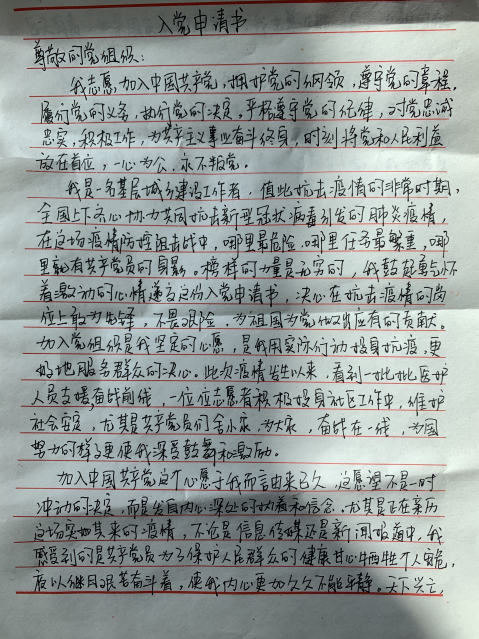 入党申请书
尊敬的党组织：
我志愿加入中国共产党，拥护党的纲领，遵守党的章程，
履行党的义务，执行党的决定，严格遵守党的纪律，对党忠诚
忠实，积极工作，为共产主义事业奋斗终身，时刻将党和人民利益
放在首位，一心为公，永不叛党。
我是一名基层城乡建设工作者，值此抗击疫情的非常时期，
全国上下齐心协力共同抗击新型冠状病毒引发的肺炎疫情，
在这场疫情防控阻击战中，哪里最危险，哪里任务最繁重，哪
里就有共产党员的身影。榜样的力量是无穷的，我鼓起勇气怀
着激动的心情递交这份入党申请书，决心在抗击疫情的岗
位上敢为先锋，不畏艰险，为祖国为党做出应有的贡献。
加入党组织是我坚定的心愿，是我用实际行动投身抗疫，更
好地服务群众的决心。此次疫情发生以来，看到一批批医护
人员支援，奋战前线，一位位志愿者积极投身社区工作中，维护
社会安定，尤其是共产党员们舍小家为大家，奋战在一线，为国
努力的样子更使我深受鼓舞和激励。
加入中国共产党这个心愿于我而言由来已久，这愿望不是一时
冲动的决定，而是发自内心深处的执着和信念。尤其是正在亲历
这场突如其来的疫情，不论是信息传媒还是新闻报道中，我
感受到的是共产党员为了保护人民群众的健康甘心牺牲个人安危，
夜以继日艰苦奋斗着，使我内心更加久久不能平静。天下兴亡，